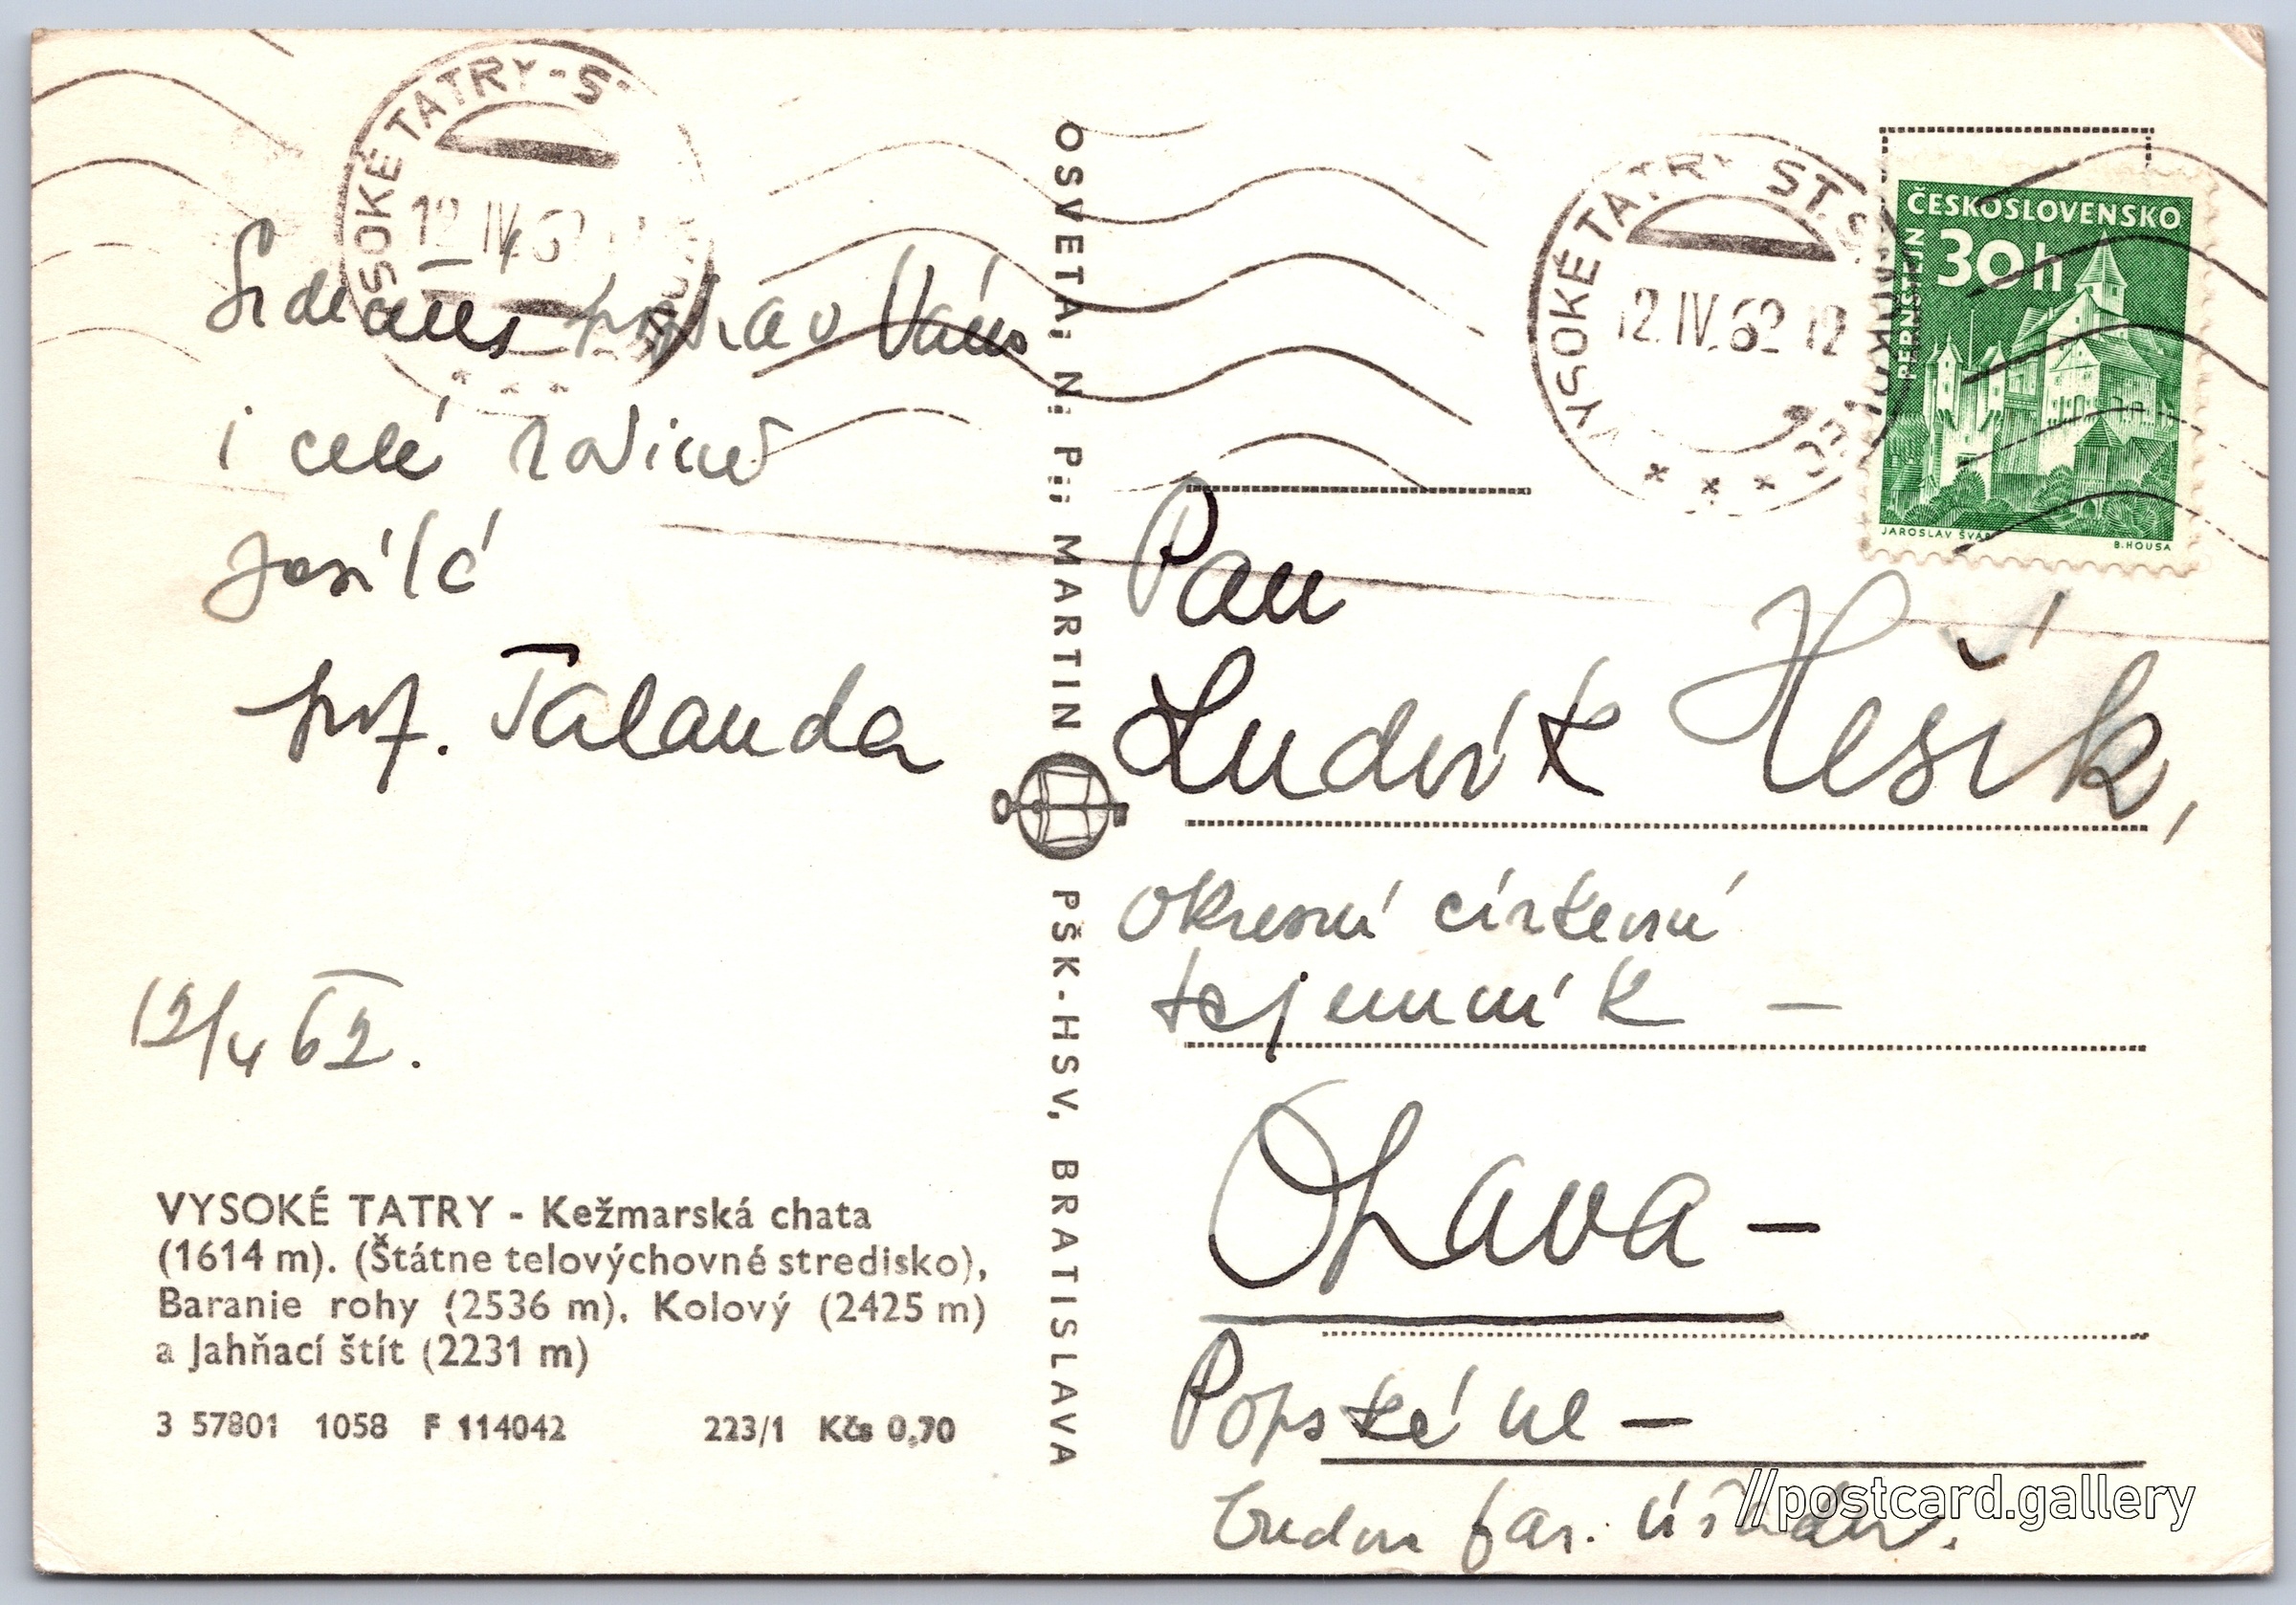 VYSOKÉ TATRY - S
12.IV.62
Srdečný pozdrav Vám
i celé rodině
posílá
prof. Talanda
12/4 62.
VYSOKÉ TATRY - Kežmarská chata
(1614 m). (Štátne telovýchovné stredisko),
Baranie rohy (2536 m), Kolový (2425 m)
a Jahňací štít (2231 m)
3 57801 1058 F 114042 223/1 Kčs 0,70
OSVETA, N. P., MARTIN
PŠK-HSV, BRATISLAVA
VYSOKÉ TATRY ST. S
12.IV.62 12
ČESKOSLOVENSKO
30h
PERNŠTEJN
JAROSLAV ŠVÁB
B. HOUSA
Pan
Ludvík Hešík,
okresní církevní
tajemník –
Opava –
Popské ul –
budov far. úřadu.
//postcard.gallery